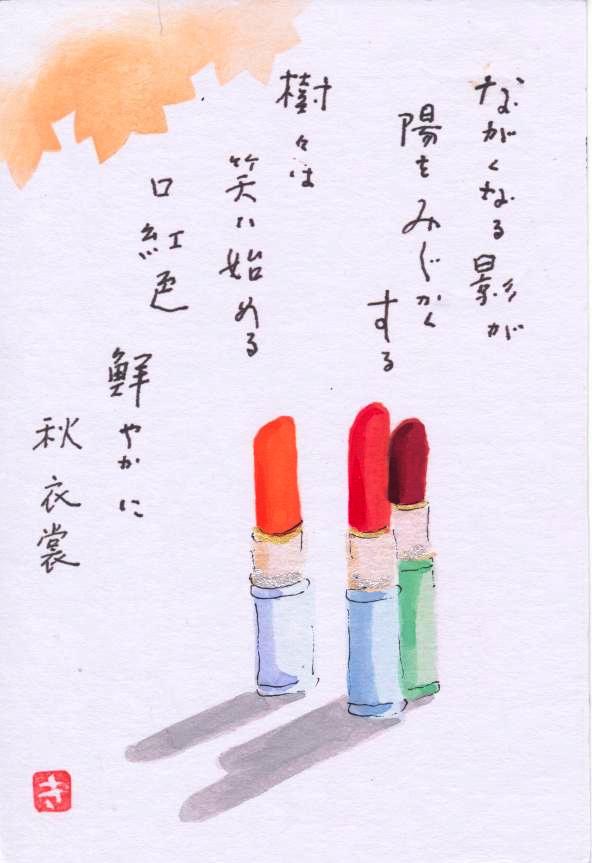 ながくなる影が
陽をみじかく
する
樹々は
笑い始める
口紅色
鮮やかに
秋衣裳
き